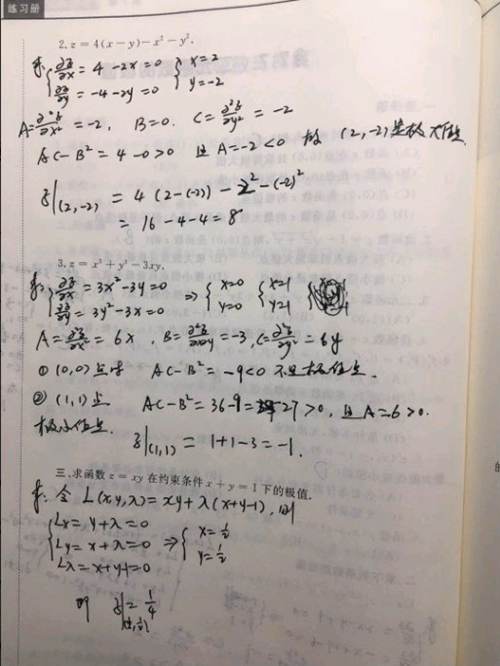 练习册
2. z=4(x-y)-x²-y².
解: { ∂z/∂x = 4-2x=0 { x=2
∂z/∂y = -4-2y=0 y=-2
A=∂²z/∂x²=-2, B=0. C=∂²z/∂y²=-2
AC-B²=4-0>0 且 A=-2<0 故 (2,-2)是极大值点.
z|(2,-2) = 4(2-(-2))-2²-(-2)²
= 16-4-4=8
3. z=x³+y³-3xy.
解: { ∂z/∂x=3x²-3y=0 ⇒ { x=0 { x=1
∂z/∂y=3y²-3x=0 y=0 y=1
A=∂²z/∂x²=6x, B=∂²z/∂x∂y=-3, C=∂²z/∂y²=6y
① (0,0)点处 AC-B²=-9<0 不是极值点.
② (1,1)点 AC-B²=36-9=27>0, 且A=6>0.
极小值点. z|(1,1)=1+1-3=-1.
三、求函数 z=xy 在约束条件 x+y=1 下的极值.
解: 令 L(x,y,λ)=xy+λ(x+y-1), 则
{ Lx=y+λ=0
Ly=x+λ=0 ⇒ { x=½
y=½
Lλ=x+y-1=0
则 z|(½,½)=¼